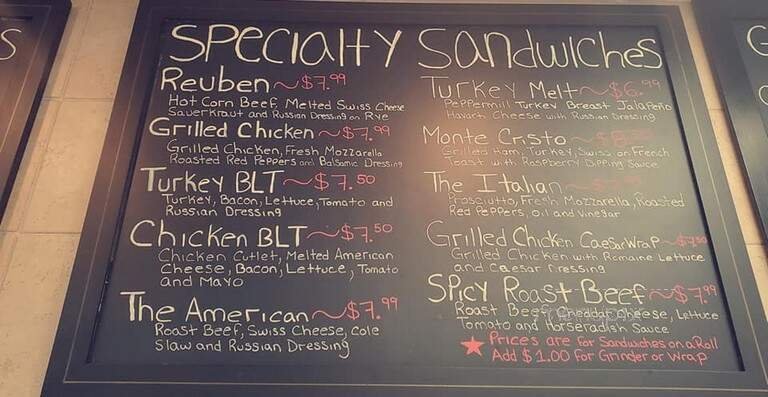 Specialty Sandwiches
Reuben ~ $7.99
Hot Corn Beef, Melted Swiss Cheese
Sauerkraut and Russian Dressing on Rye
Grilled Chicken ~ $7.99
Grilled Chicken, Fresh Mozzarella
Roasted Red Peppers and Balsamic Dressing
Turkey BLT ~ $7.50
Turkey, Bacon, Lettuce, Tomato and
Russian Dressing
Chicken BLT ~ $7.50
Chicken Cutlet, Melted American
Cheese, Bacon, Lettuce, Tomato
and Mayo
The American ~ $7.99
Roast Beef, Swiss Cheese, Cole
Slaw and Russian Dressing
Turkey Melt ~ $6.99
Peppermill Turkey Breast Jalapeño
Havarti Cheese with Russian Dressing
Monte Cristo ~
Grilled Ham, Turkey, Swiss on French
Toast with Raspberry Dipping Sauce
The Italian ~
Prosciutto, Fresh Mozzarella, Roasted
Red Peppers, Oil and Vinegar
Grilled Chicken Caesar Wrap ~ $7.50
Grilled Chicken with Romaine Lettuce
and Caesar Dressing
Spicy Roast Beef ~ $7.99
Roast Beef, Cheddar Cheese, Lettuce
Tomato and Horseradish Sauce
★ Prices are for Sandwiches on a Roll
Add $1.00 for Grinder or Wrap